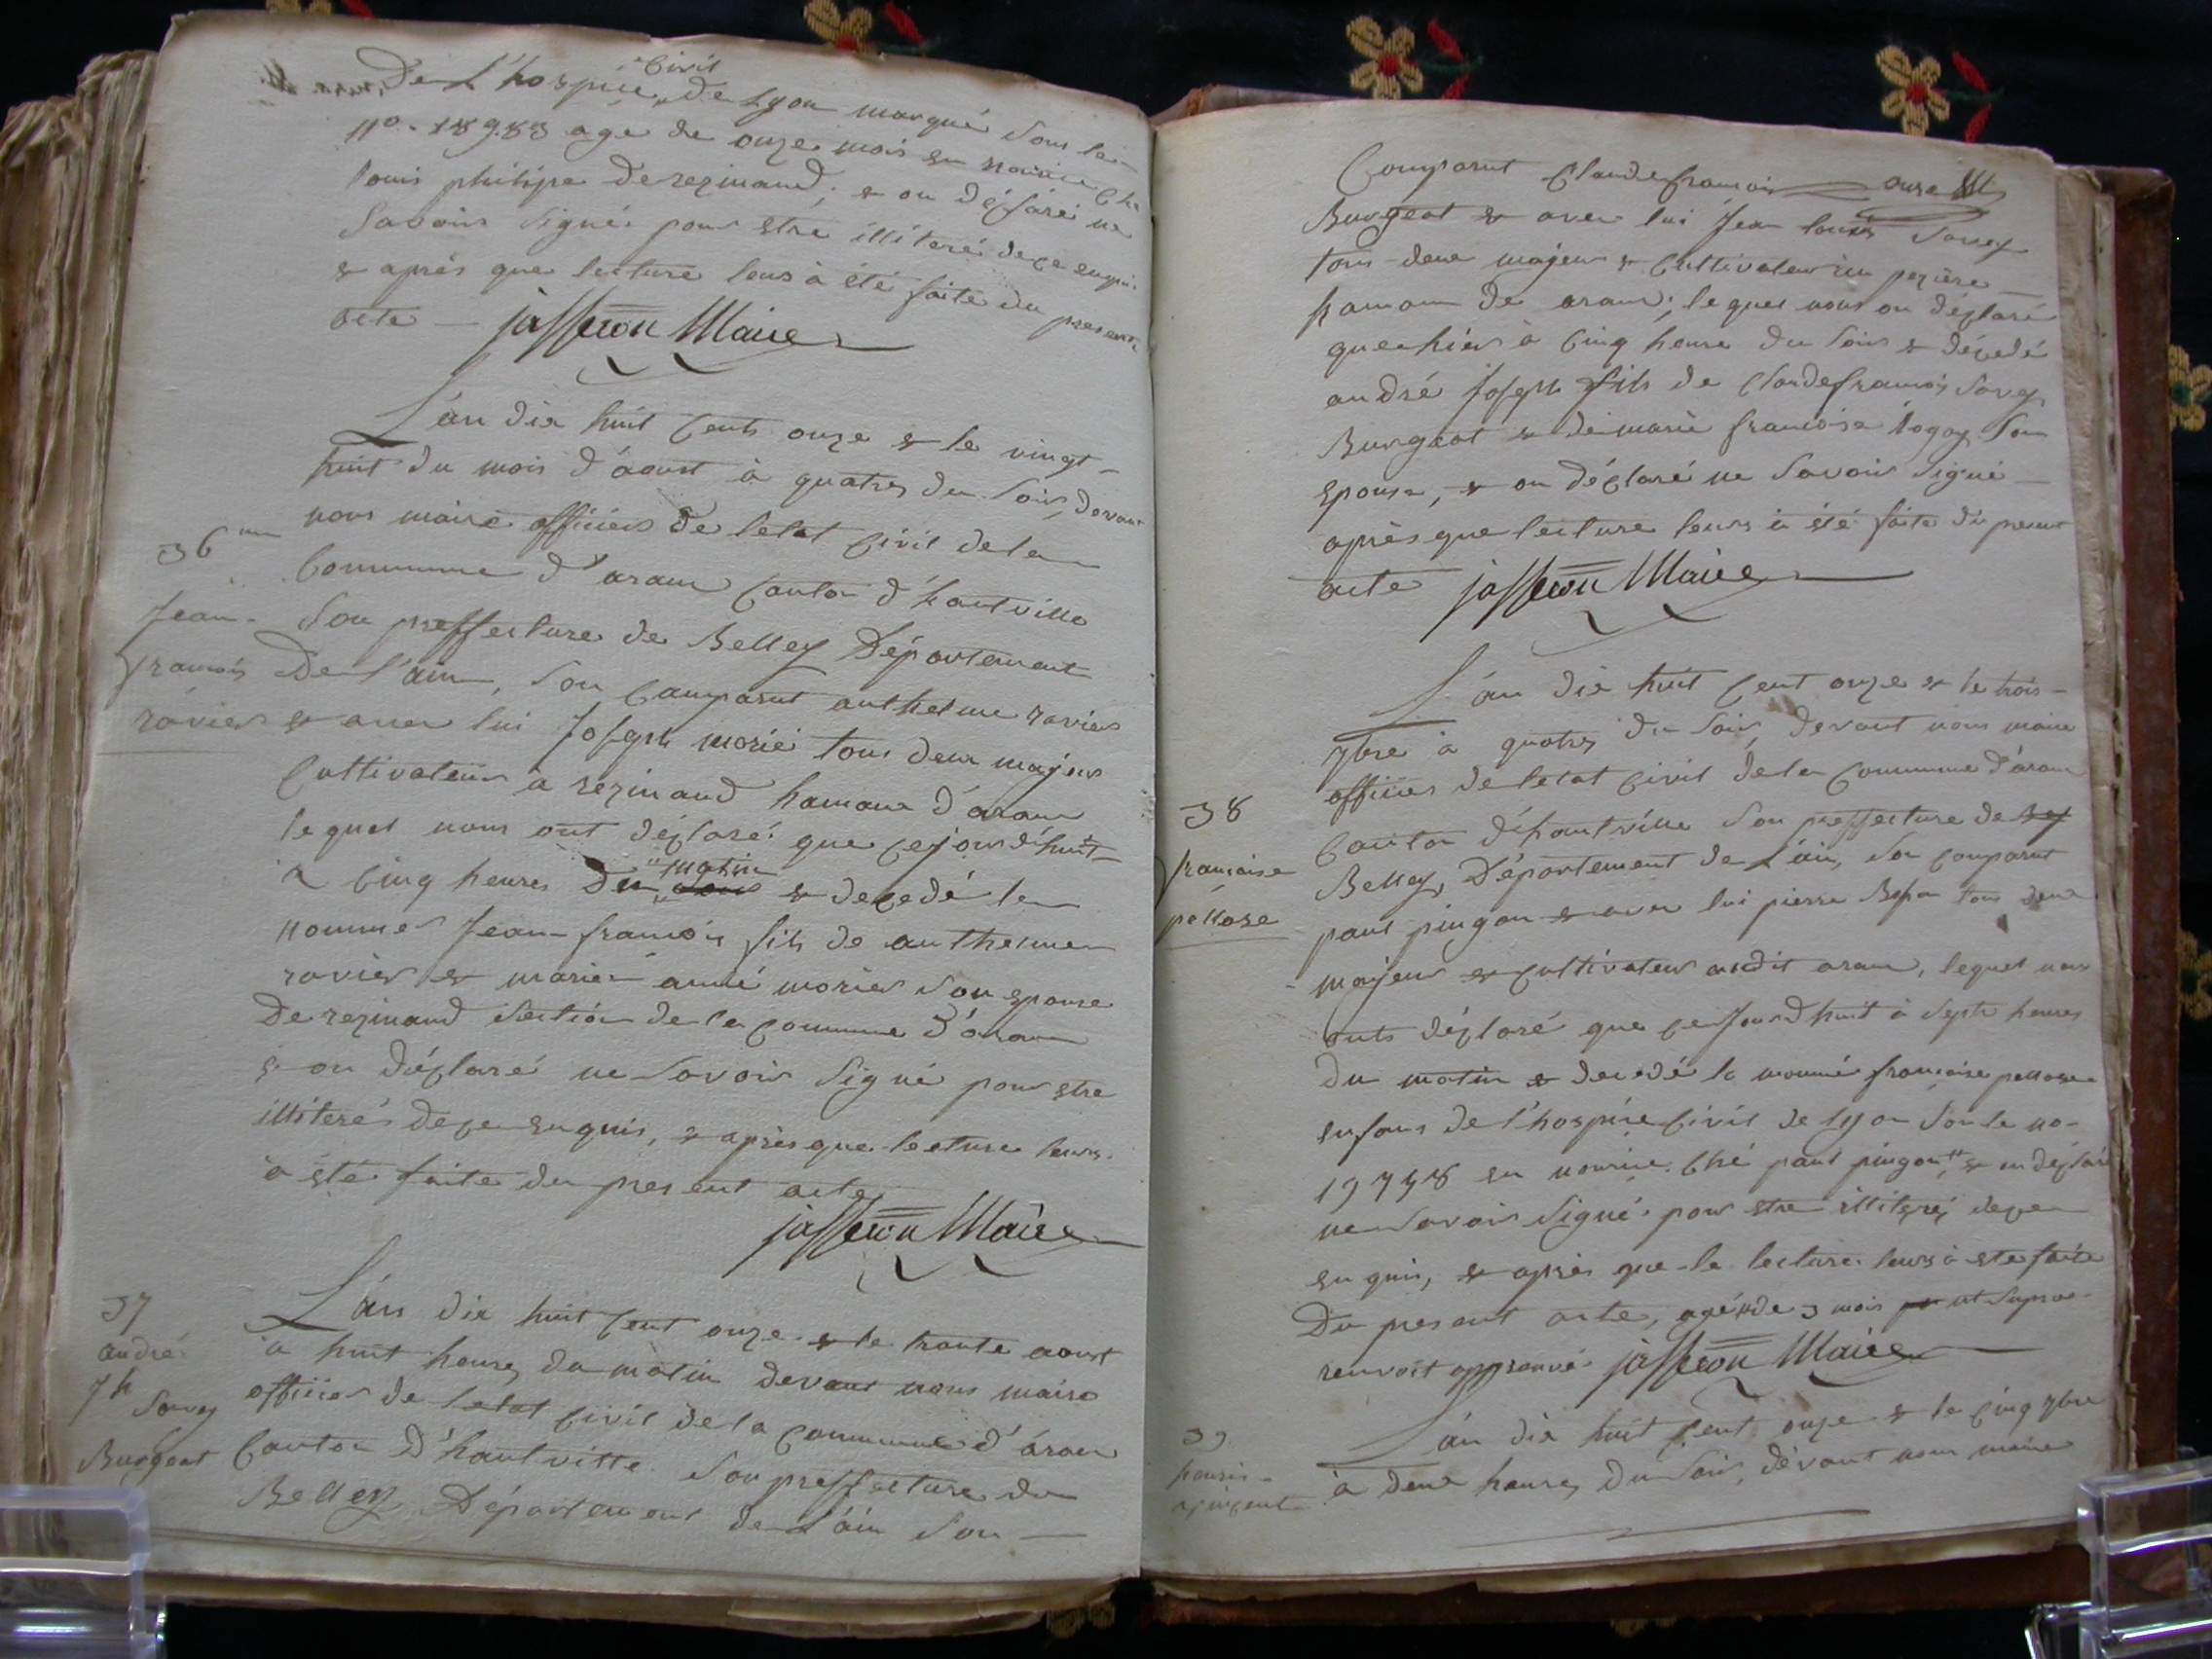 De L'hospice civil de Lyon marqué sous le
n°. 18983 age de onze mois en nourice ché
louis philipe derezinand; & on déclaré ne
savoir signé pour etre illiteré de ce enquis
& aprés que lecture leus à été faite du present
acte — jasseron Maire
L'an dix huit cents onze & le vingt
huit du mois d'aoust à quatres du soir, devant
nous maire officier de letat civil de la
36me
commune d'aranc canton d'hautville
Jean
françois
ravier
sou preffecture de Belley Département
De l'ain, son comparut anthelme ravier
& avec lui Joseph morié tous deux majeur
cultivateur à rezinand hamaux d'aranc
lequel nous ont déclaré que cejourd'huit
à cinq heures du matin & decedé le
nommes Jean françois fils de anthelme
ravier & marie anné morier son epouse
De rezinand section de la commune d'aranc
& on déclaré ne savoir signé pour etre
illiterés de ce enquis, & aprés que lecture leurs
à été faite du present acte
jasseron Maire
37
andré
jh savey
Burgeat
L'an dix huit cent onze & le trante aoust
à huit heures du matin devant nous maire
officier de letat civil de la commune d'aranc
canton d'hautville sou preffecture de
Belley Département de L'ain son
comparut claude françois
Burgeat & avec lui Jean louis savey
tous deux majeur & cultivateur
hamau de aranc; lequel nous on déclaré
que hier à cinq heure du soir & décedé
andré Joseph fils de claude françois savey
Burgeat & de marie francoise son
epouse, & on déclaré ne savoir signé
aprés que lecture leurs à été faite du present
acte jasseron Maire
L'an dix huit cent onze & le trois
7bre à quatres du soir, devant nous maire
officier de letat civil de la commune d'aranc
38
francoise
pellose
canton d'hautville sou preffecture de
Belley, Département de L'ain, son comparut
paul pingon & avec lui pierre tous deux
majeur & cultivateur audit aranc, lequel nous
onts déclaré que cejourd'huit à septs heures
du matin & decedé la nommé françoise pellose
enfans de l'hospice civil de Lyon sou le no
en nourice ché paul pingon & on déclaré
ne savoir signé pour etre illiterés de ce
enquis, & aprés que la lecture leurs à eté faite
Du present acte, agé de 3 mois ut supra
renvoit approuvé jasseron Maire
39
L'an dix huit cent onze & le cinq 7bre
à deux heures du soir, dévant nous maire